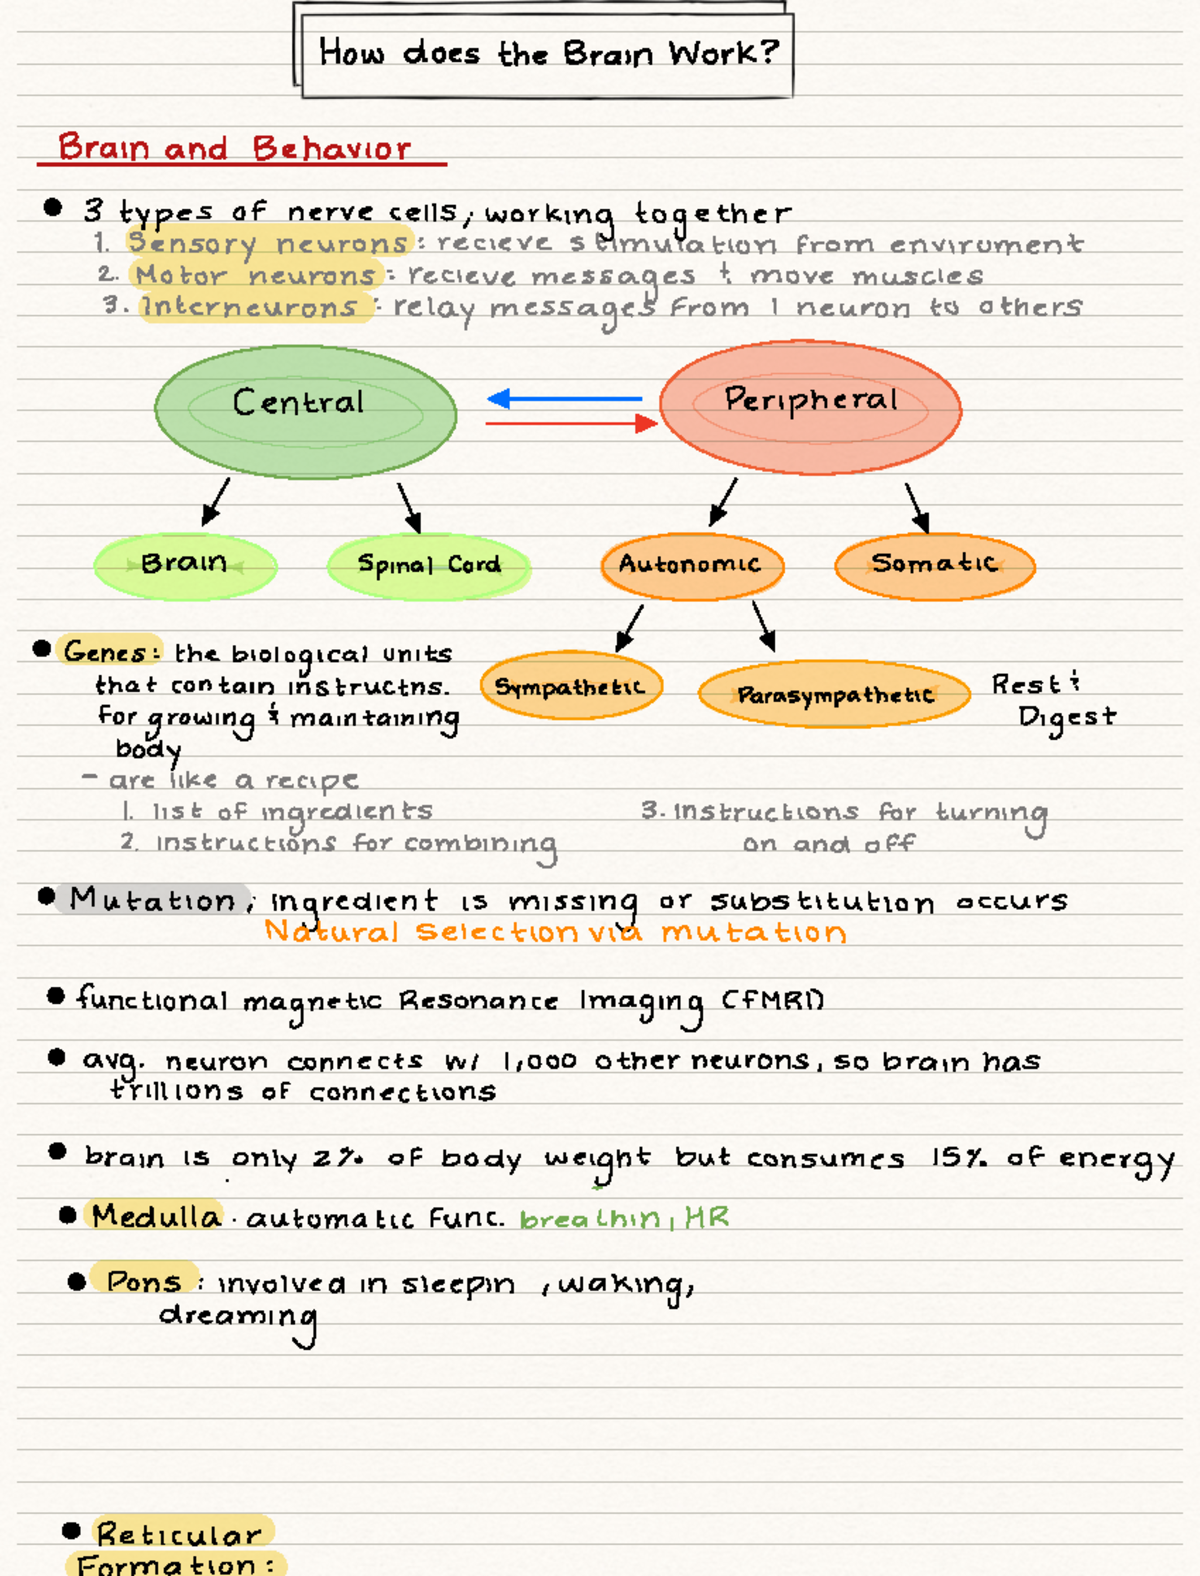 How does the Brain Work?
Brain and Behavior
• 3 types of nerve cells, working together
1. Sensory neurons: recieve stimulation from enviroment
2. Motor neurons: recieve messages & move muscles
3. Interneurons: relay messages from 1 neuron to others
Central
Peripheral
Brain
Spinal Cord
Autonomic
Somatic
Sympathetic
Parasympathetic
Rest &
Digest
• Genes: the biological units
that contain instructns.
for growing & maintaining
body
- are like a recipe
1. list of ingredients
2. instructions for combining
3. instructions for turning
on and off
• Mutation; ingredient is missing or substitution occurs
Natural Selection via mutation
• functional magnetic Resonance Imaging (fMRI)
• avg. neuron connects w/ 1,000 other neurons, so brain has
trillions of connections
• brain is only 2% of body weight but consumes 15% of energy
• Medulla. automatic func. breathin, HR
• Pons: involved in sleepin , waking,
dreaming
• Reticular
Formation: